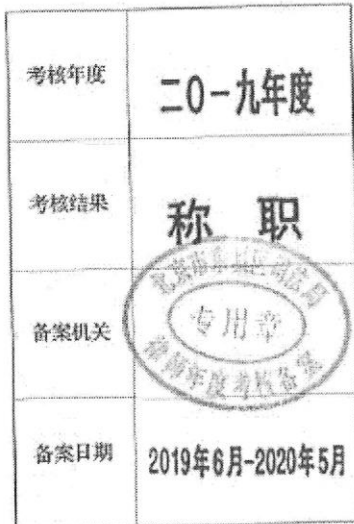 考核年度
二0一九年度
考核结果
称 职
备案机关
专用章
律师年度考核备案
备案日期
2019年6月-2020年5月